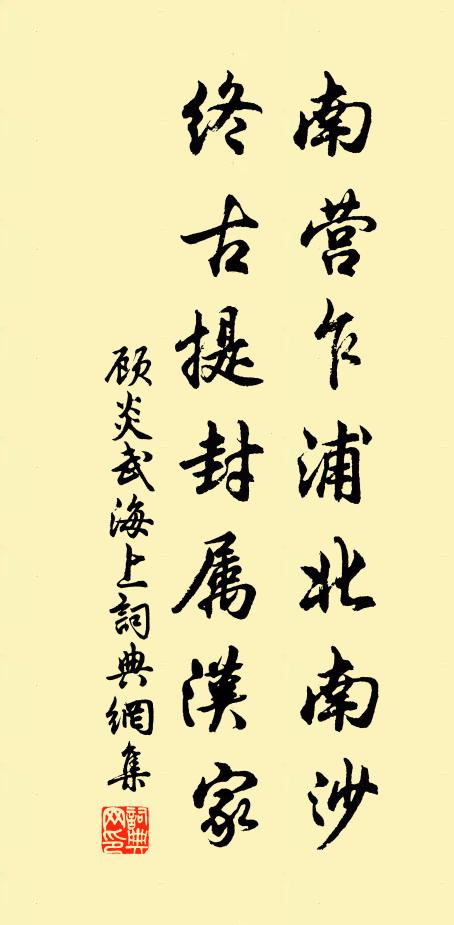 南营乍浦北南沙
终古提封属漢家
顾炎武海上詞典網集
詞典网印